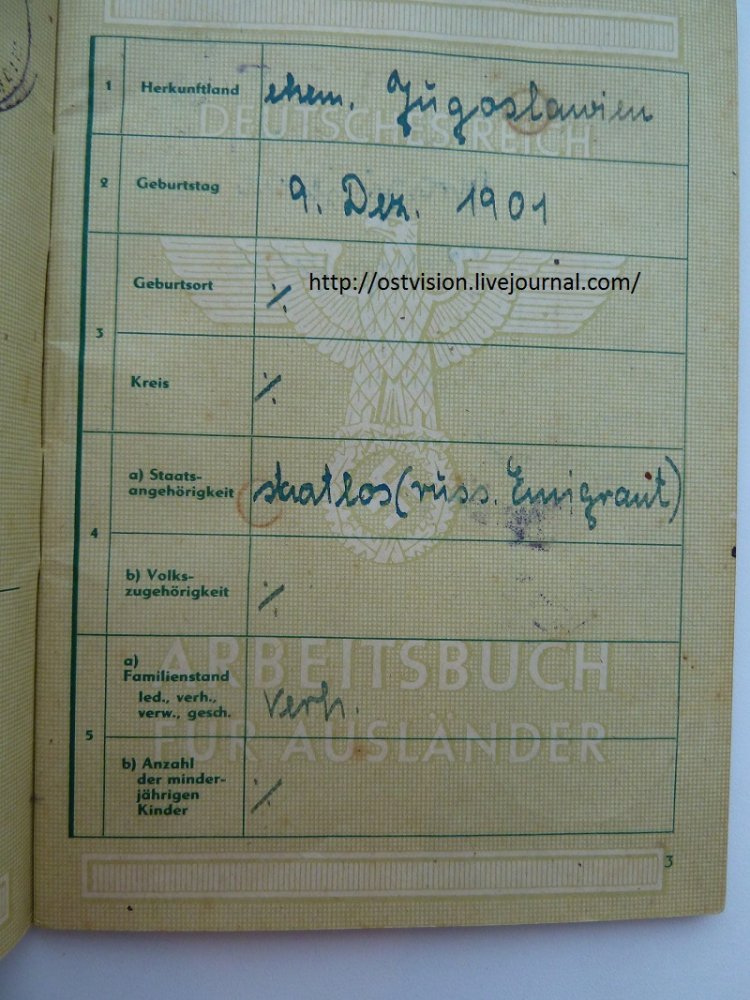 DEUTSCHES REICH
1 Herkunftland ehem. Jugoslawien
2 Geburtstag 9. Dez. 1901
http://ostvision.livejournal.com/
3 Geburtsort ·/.
Kreis ·/.
4 a) Staats-
angehörigkeit staatlos (russ. Emigrant)
b) Volks-
zugehörigkeit ·/.
ARBEITSBUCH
FÜR AUSLÄNDER
5 a)
Familienstand
led., verh.,
verw., gesch. verh.
b) Anzahl
der minder-
jährigen
Kinder ·/.
3